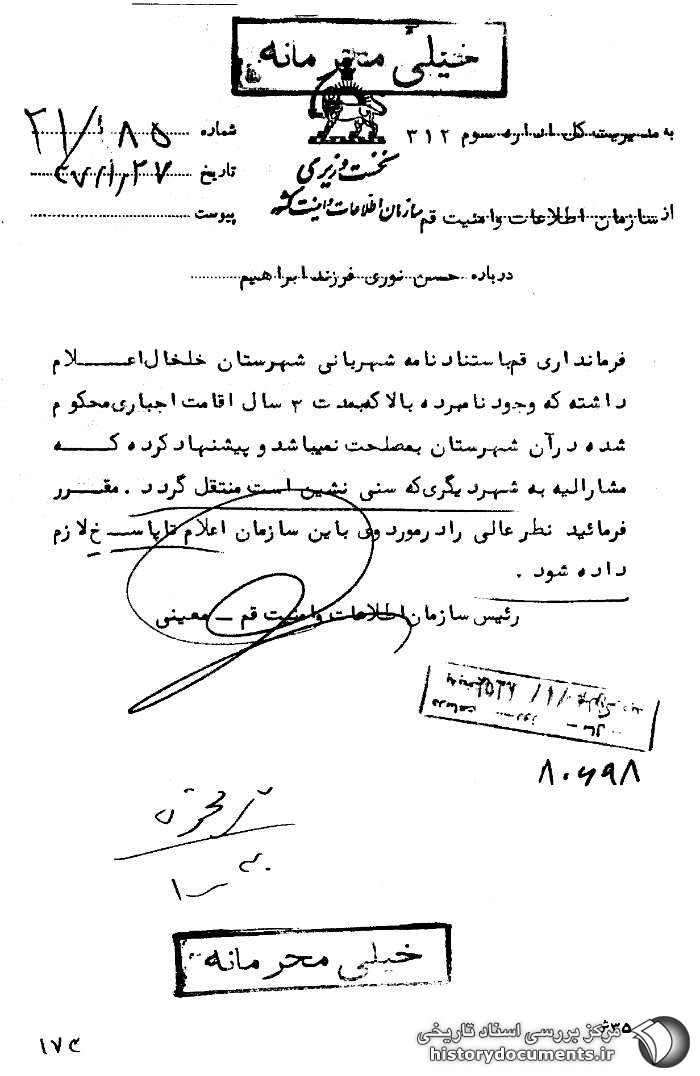 خیلی محرمانه
به مدیریت کل اداره سوم ۳۱۲
شماره ۲۱/ ۸۵
نخست وزیری
تاریخ ۳۷/۱/۲۷
سازمان اطلاعات و امنیت کشور
از سازمان اطلاعات وامنیت قم
پیوست
درباره حسن نوری فرزند ابراهیم
فرمانداری قم باستناد نامه شهربانی شهرستان خلخال اعلام
داشته که وجود نامبرده بالا که بمدت ۳ سال اقامت اجباری محکوم
شده در آن شهرستان بمصلحت نمیباشد و پیشنهاد کرده که
مشارالیه به شهر دیگری که سنی نشین است منتقل گردد . مقرر
فرمائید نظر عالی را در مورد وی باین سازمان اعلام تا پاسخ لازم
داده شود .
رئیس سازمان اطلاعات وامنیت قم – معینی
۸۰۶۹۸
خیلی محرمانه
۳۵ش
مرکز بررسی اسناد تاریخی
historydocuments.ir
۱۷۴